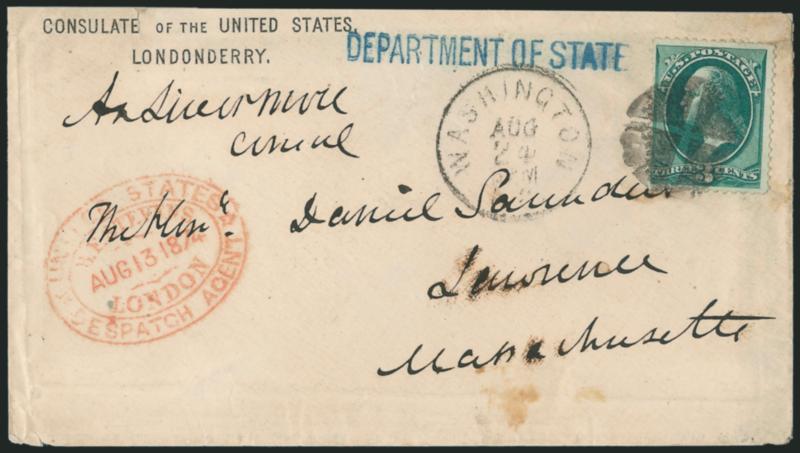 CONSULATE OF THE UNITED STATES,
LONDONDERRY.
DEPARTMENT OF STATE
U.S. POSTAGE
THREE 3 CENTS
WASHINGTON
AUG
24
M
Livermore
Consul
UNITED STATES
AUG 13 1874
LONDON
DESPATCH AGENT
The Honle. Daniel Saunders
Lawrence
Massachusetts